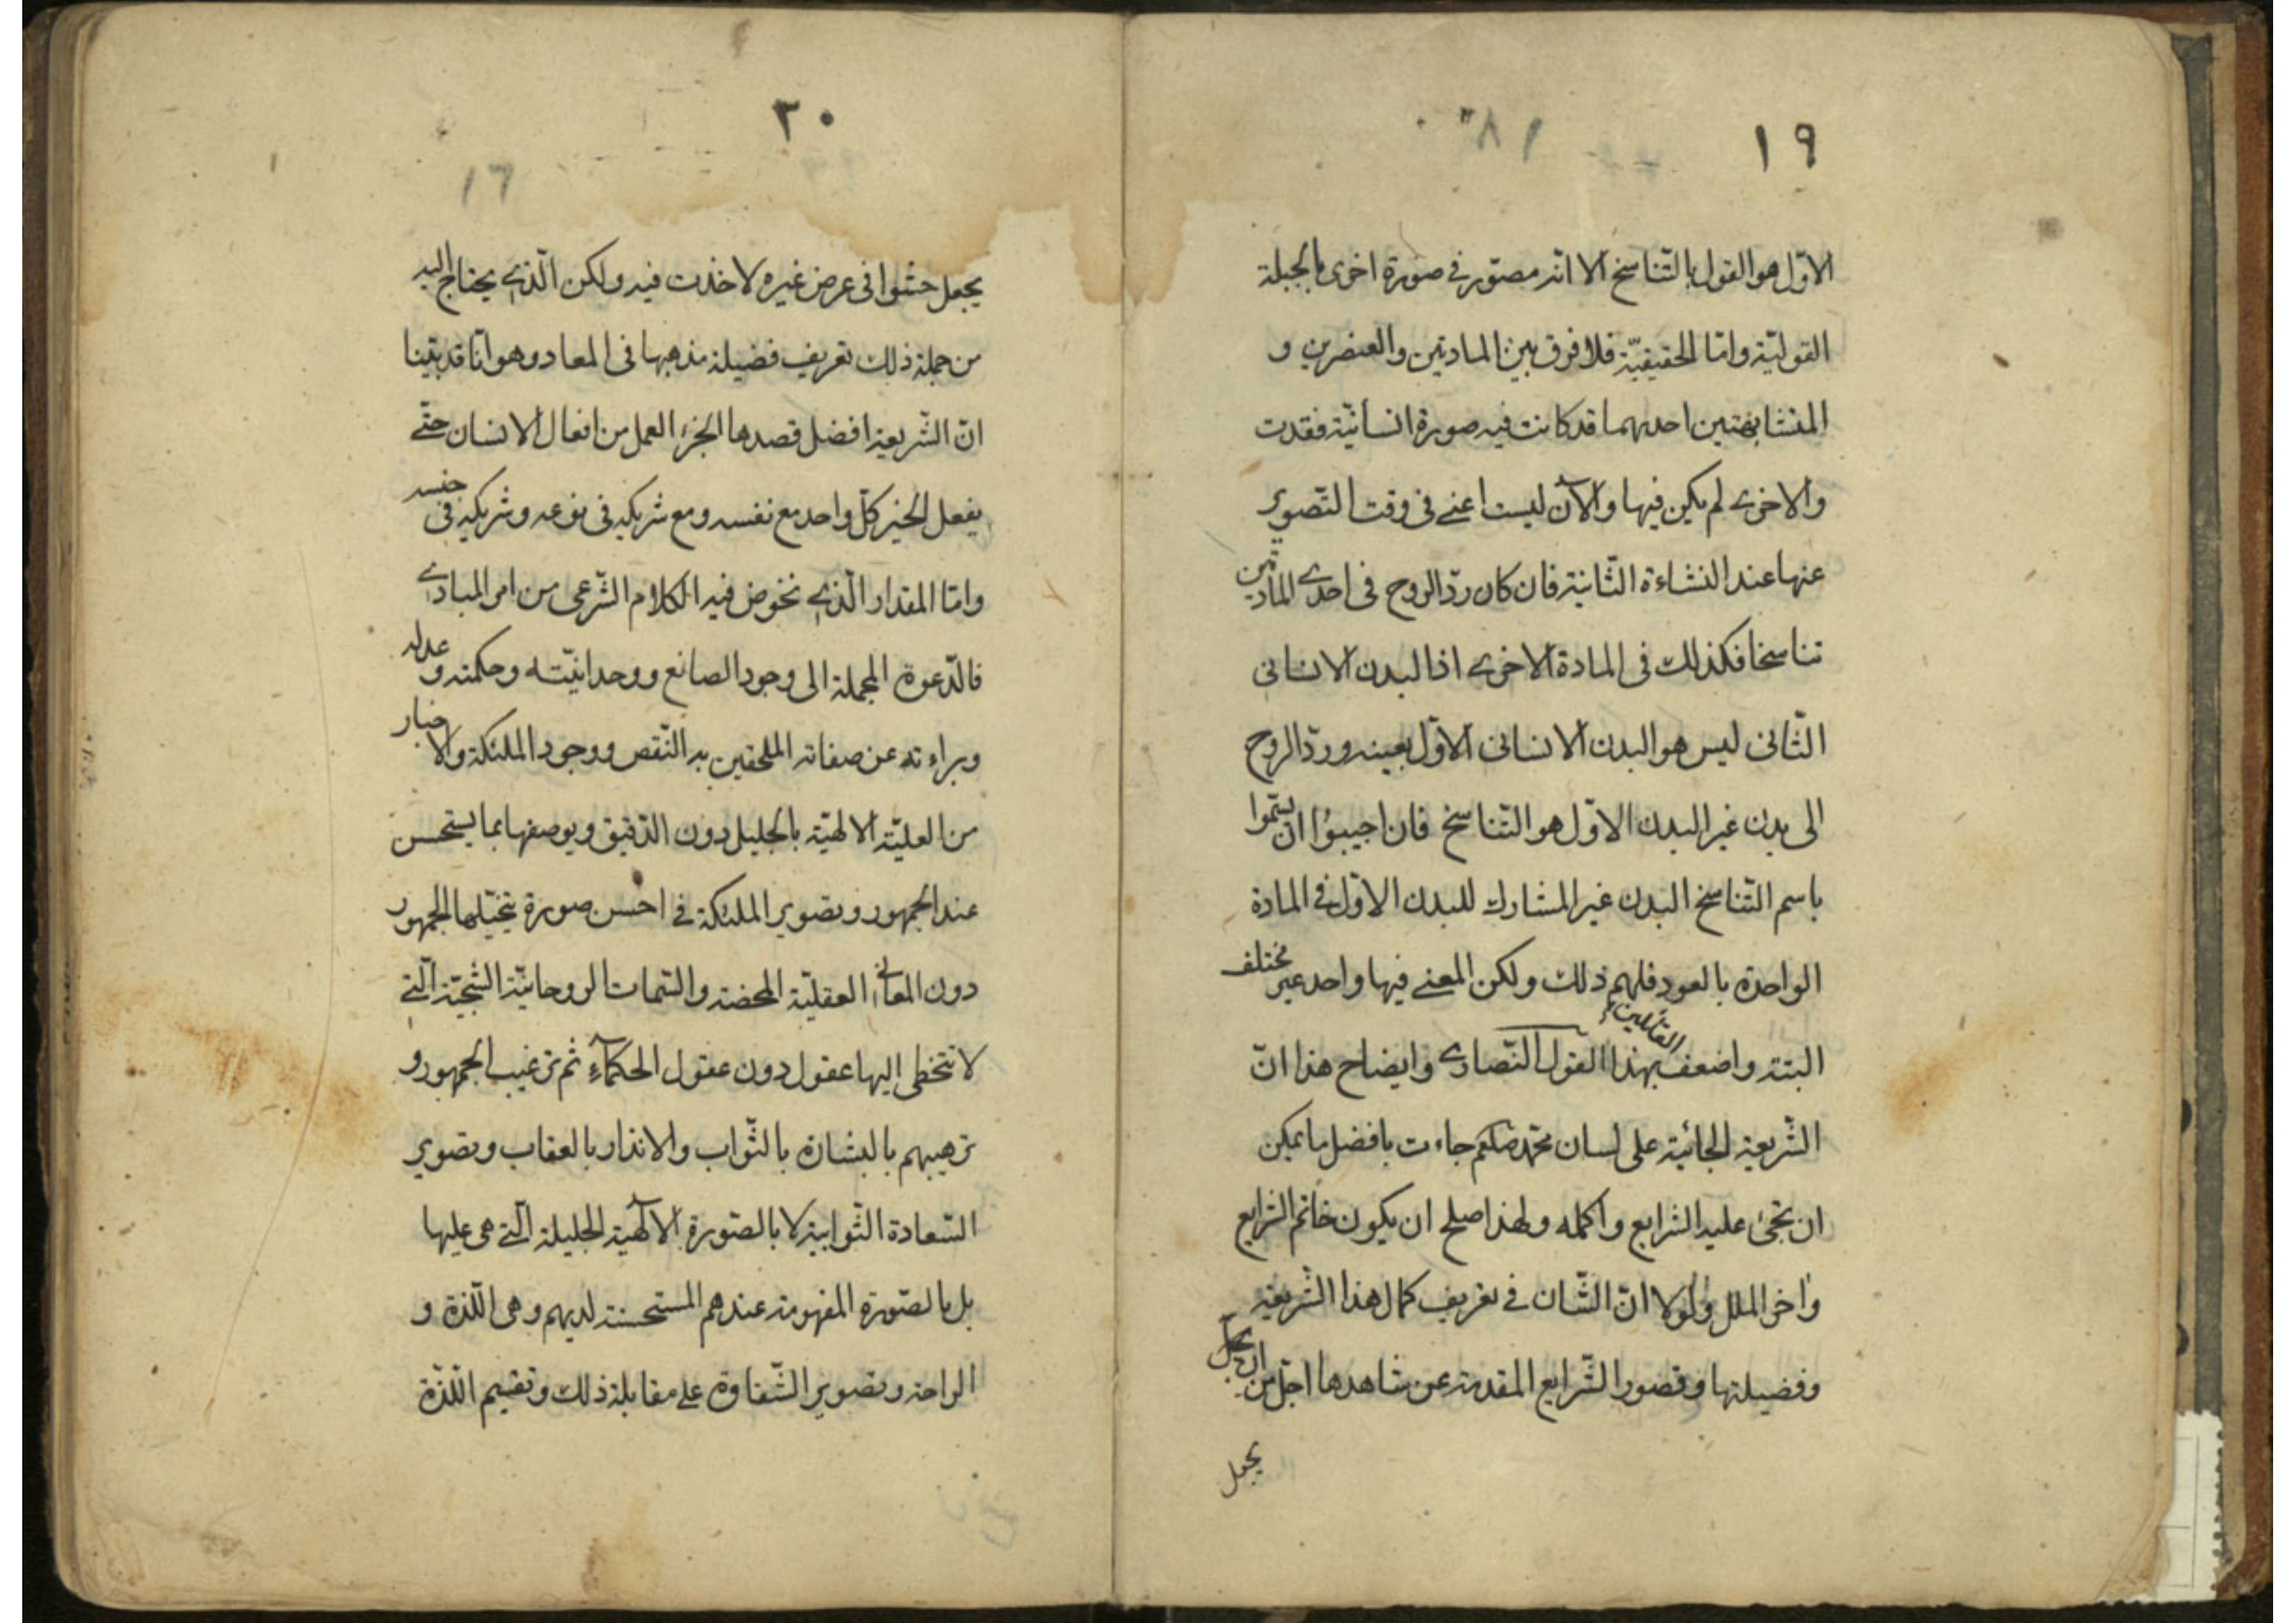 ١٩
الاوّل هو القول بالتّناسخ الا انّه مصوّر في صورة اخرى بالحيلة
القوليّة وامّا الحقيقيّة فلا فرق بين المادتين والعنصرين و
المتشابهتين احديهما قد كانت فيه صورة انسانيّة فقدت
والاخرى لم يكن فيها والآن ليست اعنى فى وقت التّصوير
عنها عند النشاءة الثّانية فان كان ردّ الروح فى احدى المادّتين
تناسخا فكذلك فى المادة الاخرى اذا البدن الانسانى
الثّانى ليس هو البدن الانسانى الاوّل بعينه وردّ الروح
الى بدن غير البدن الاوّل هو التّناسخ فان اجيبوُا ان يسمّوا
باسم التّناسخ البدن غير المشارك للبدن الاوّل فى المادة
الواحدة بالعود فلهم ذلك ولكن المعنى فيها واحد غير مختلف
البتة واضعف القائلين بهذا القول النّصارى وايضاح هذا انّ
الشّريعة الجائية على لسان محمّد صلعم جاءت بافضل ما يمكن
ان تجئ عليه الشرايع واكمله ولهذا صلح ان يكون خاتم الشرايع
واخر الملل ولولا انّ الشّان في تعريف كمال هذا الشّريعة
وفضيلتها وقصور الشّرايع المقدمة عن شاهدها اجلّ من ان يجعل
يجعل
٢٠
١٦
يجعل حشوا فى عرض غيره لاخذت فيه ولكن الّذى يحتاج اليه
من جملة ذلك تعريف فضيلة مذهبها فى المعاد وهو انّا قد بيّنا
انّ الشّريعة افضل قصدها الجزء العمل من افعال الانسان حتّى
يفعل الخير كلّ واحد مع نفسه ومع شريكه فى نوعه وشريكه فى جنسه
وامّا المقدار الّذى نخوض فيه الكلام الشّرعى من امر المبادى
فالدّعوة المجملة الى وجود الصانع ووحدانيّته وحكمته وعدله
وبراءته عن صفاته الملحقين به النّقص ووجود الملئكة والاخبار
من العليّة الالهيّة بالجليل دون الدّقيق ويوصفها بما يستحسن
عند الجمهور وتصوير الملئكة في احسن صورة يتخيّلها الجمهور
دون المعانى العقليّة المحضة والسّمات الروحانيّة الشّبحيّة الّتى
لا تتخطى اليها عقول دون عقول الحكمآء ثم ترغيب الجمهور و
ترهيبهم بالبشارة بالثّواب والانذار بالعقاب وتصوير
السّعادة الثّوابية لا بالصّورة الالٓهية الجليلة الّتى هى عليها
بل بالصّورة المفهومة عندهم المستحسنة لديهم وهى اللّذة و
الراحة وتصوير الشّقاوة على مقابلة ذلك وتقسيم اللّذة